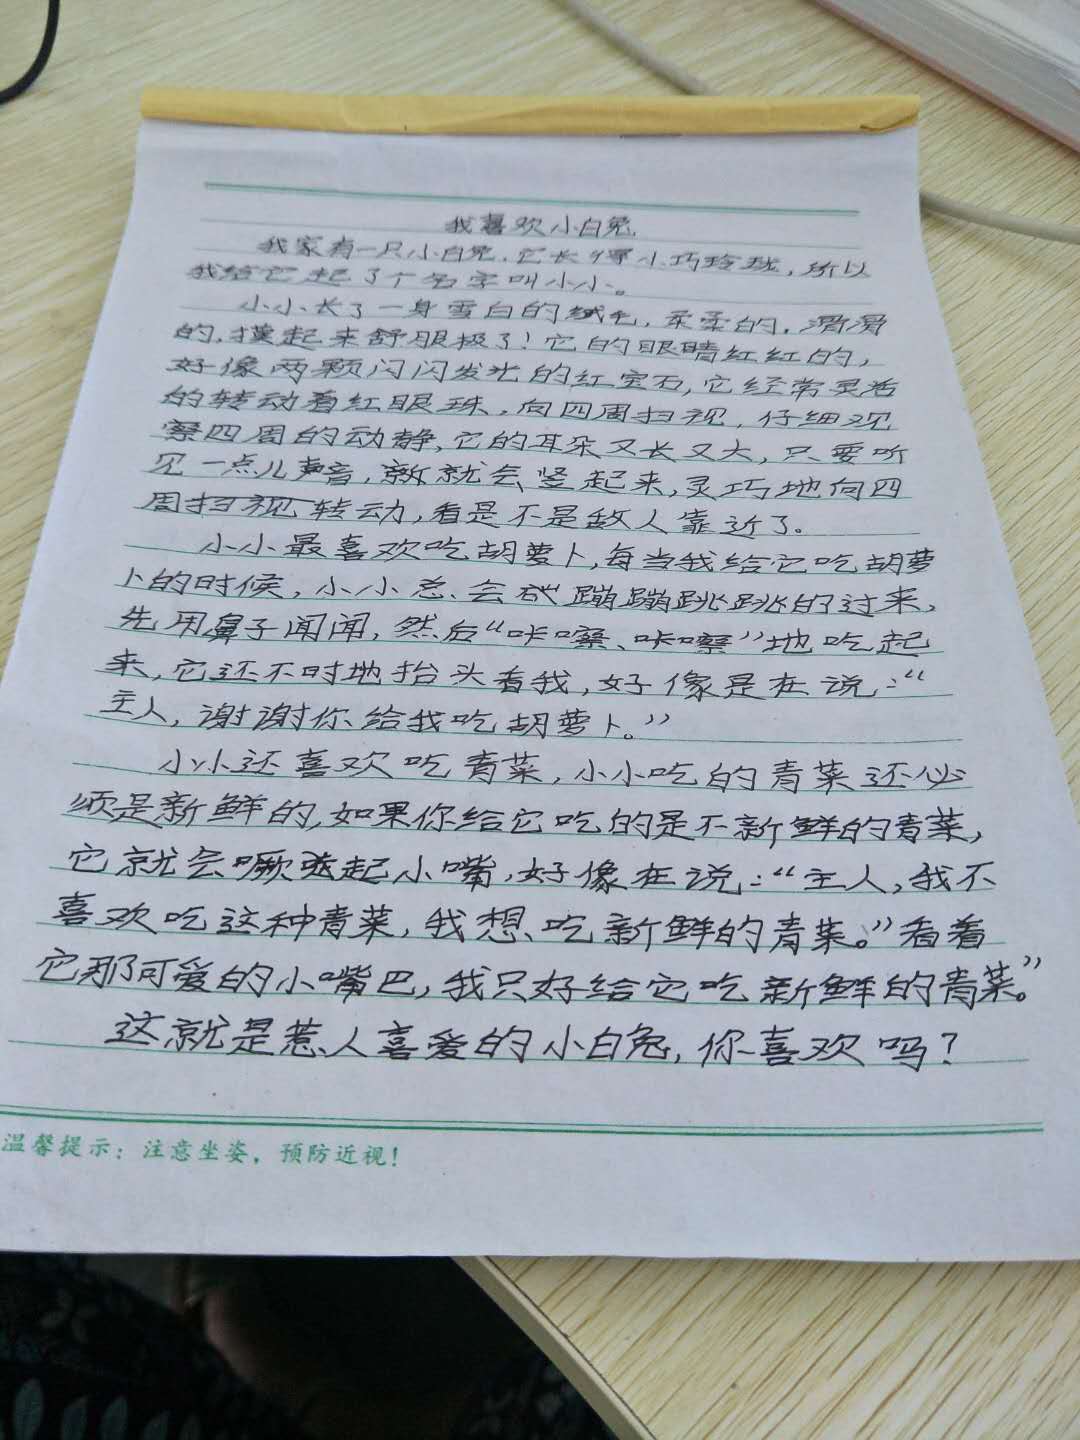 我喜欢小白兔
我家有一只小白兔,它长得小巧玲珑,所以
我给它起了个名字叫小小。
小小长了一身雪白的绒毛,柔柔的,滑滑
的,摸起来舒服极了!它的眼睛红红的,
好像两颗闪闪发光的红宝石,它经常灵活
的转动着红眼珠,向四周扫视,仔细观
察四周的动静,它的耳朵又长又大,只要听
见一点儿声音,就会竖起来,灵巧地向四
周扫视转动,看是不是敌人靠近了。
小小最喜欢吃胡萝卜,每当我给它吃胡萝
卜的时候,小小总会蹦蹦跳跳的过来,
先用鼻子闻闻,然后“咔嚓、咔嚓”地吃起
来,它还不时地抬头看我,好像是在说:“
主人,谢谢你给我吃胡萝卜。”
小小还喜欢吃青菜,小小吃的青菜还必
须是新鲜的,如果你给它吃的是不新鲜的青菜,
它就会噘起小嘴,好像在说:“主人,我不
喜欢吃这种青菜,我想吃新鲜的青菜。”看着
它那可爱的小嘴巴,我只好给它吃新鲜的青菜。”
这就是惹人喜爱的小白兔,你喜欢吗?
温馨提示:注意坐姿,预防近视!